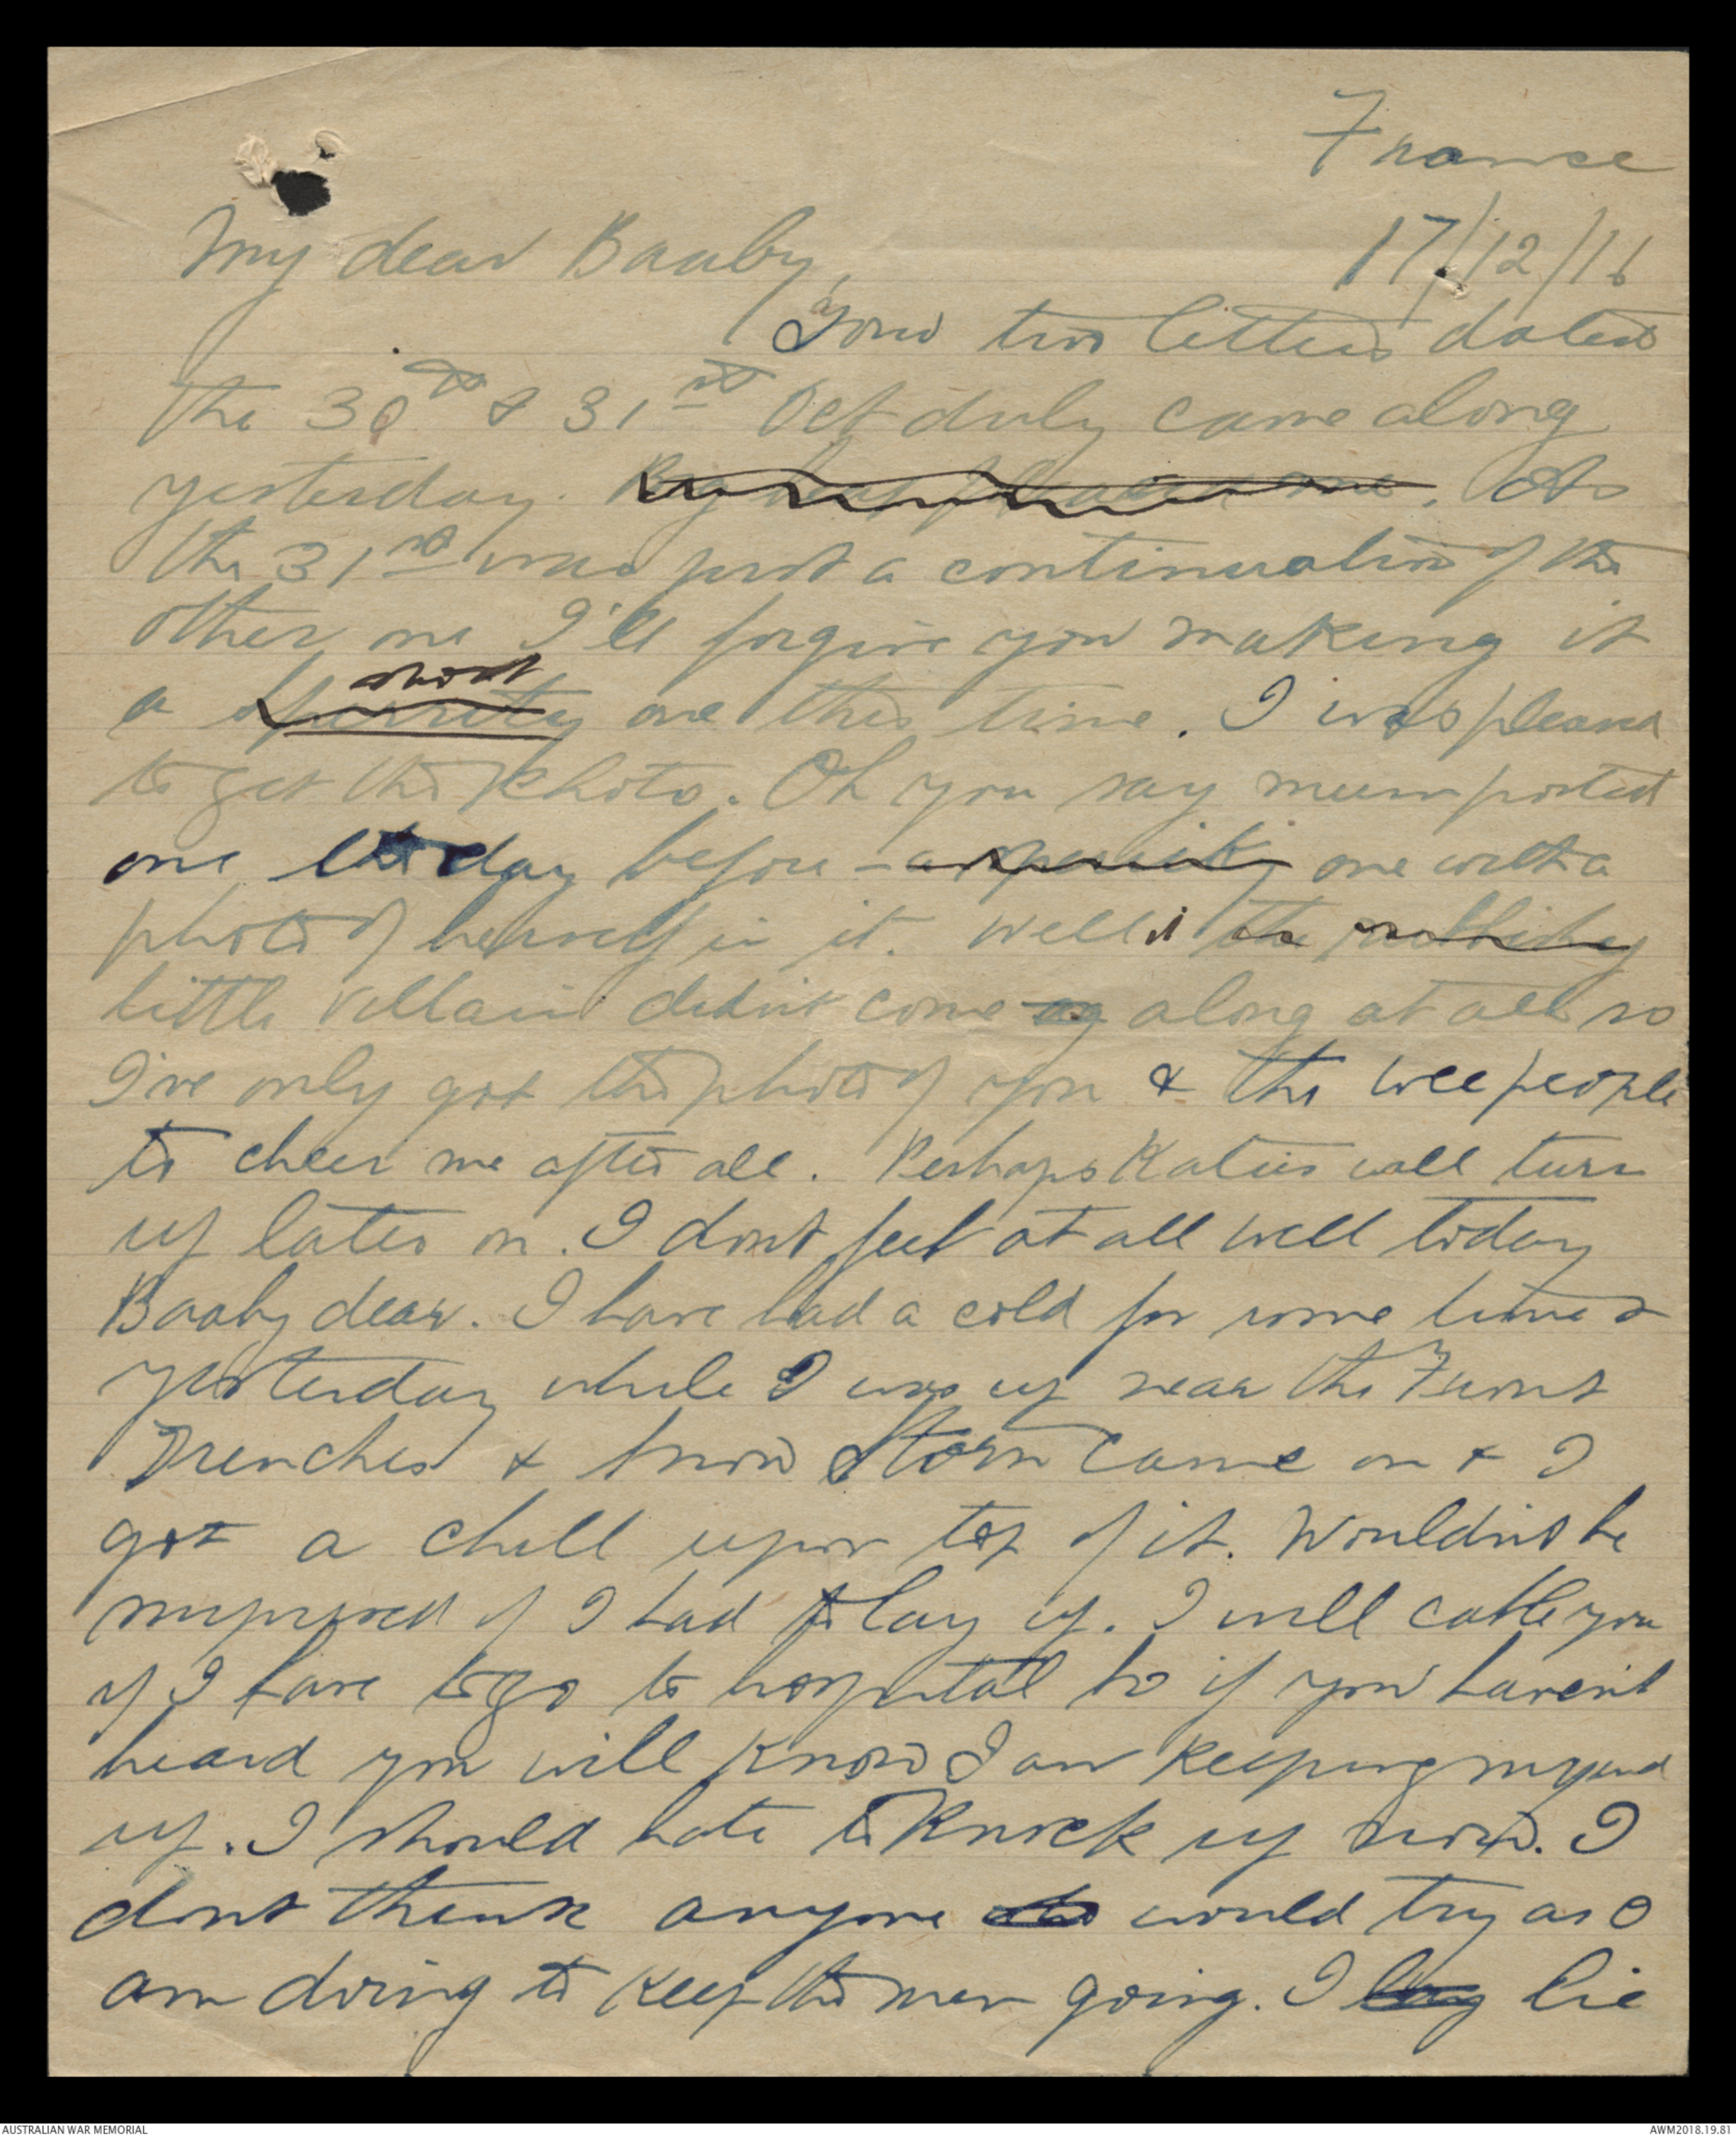 France
17/12/16
My dear Baaby,
Your two letters dated
the 30th & 31st Oct duly came along
yesterday. As
the 31st was just a continuation of the
other one I'll forgive you making it
short
a one this time. I was pleased
to get the Photo. Oh you say mum posted
one the day before - a one with a
photo of herself in it. Well the
little villain didn't come along at all so
I've only got the photo of you & the wee people
to cheer me after all. Perhaps Katies will turn
up later on. I dont feel at all well today
Baaby dear. I have had a cold for some time &
yesterday while I was up near the Front
Trenches a snow storm came on & I
got a chill upon top of it. Wouldn't be
surprised if I had to lay up. I will cable you
if I have to go to hospital so if you haven't
heard you will know I am keeping my end
up. I should hate to Knock up now. I
dont think anyone would try as I
am doing to keep the men going. I lay lie
AUSTRALIAN WAR MEMORIAL
AWM2018.19.81